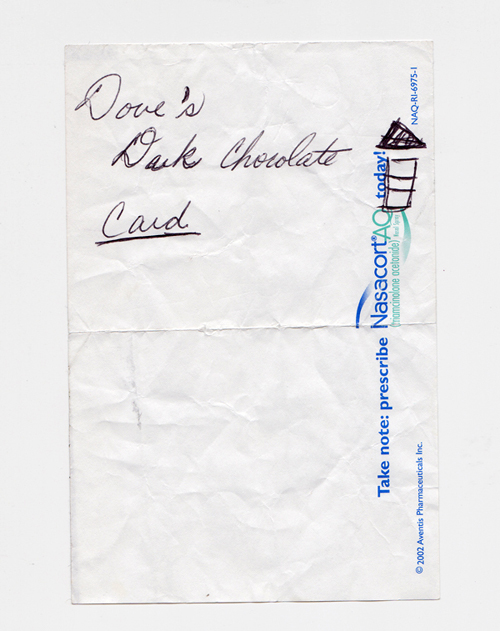 Dove's
Dark Chocolate
Card
Take note: prescribe Nasacort®AQ today!
(triamcinolone acetonide) Nasal Spray
© 2002 Aventis Pharmaceuticals Inc.
NAQ-RI-6975-1